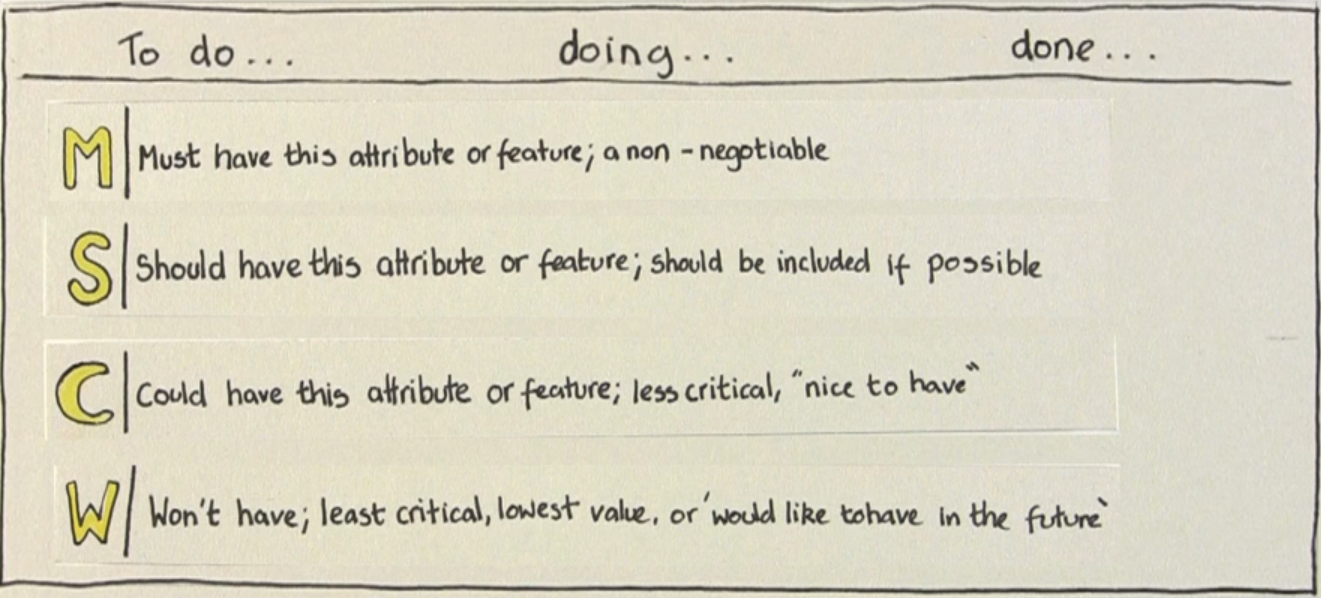 To do... doing... done...
M Must have this attribute or feature; a non-negotiable
S Should have this attribute or feature; should be included if possible
C Could have this attribute or feature; less critical, "nice to have"
W Won't have; least critical, lowest value, or 'would like to have in the future'